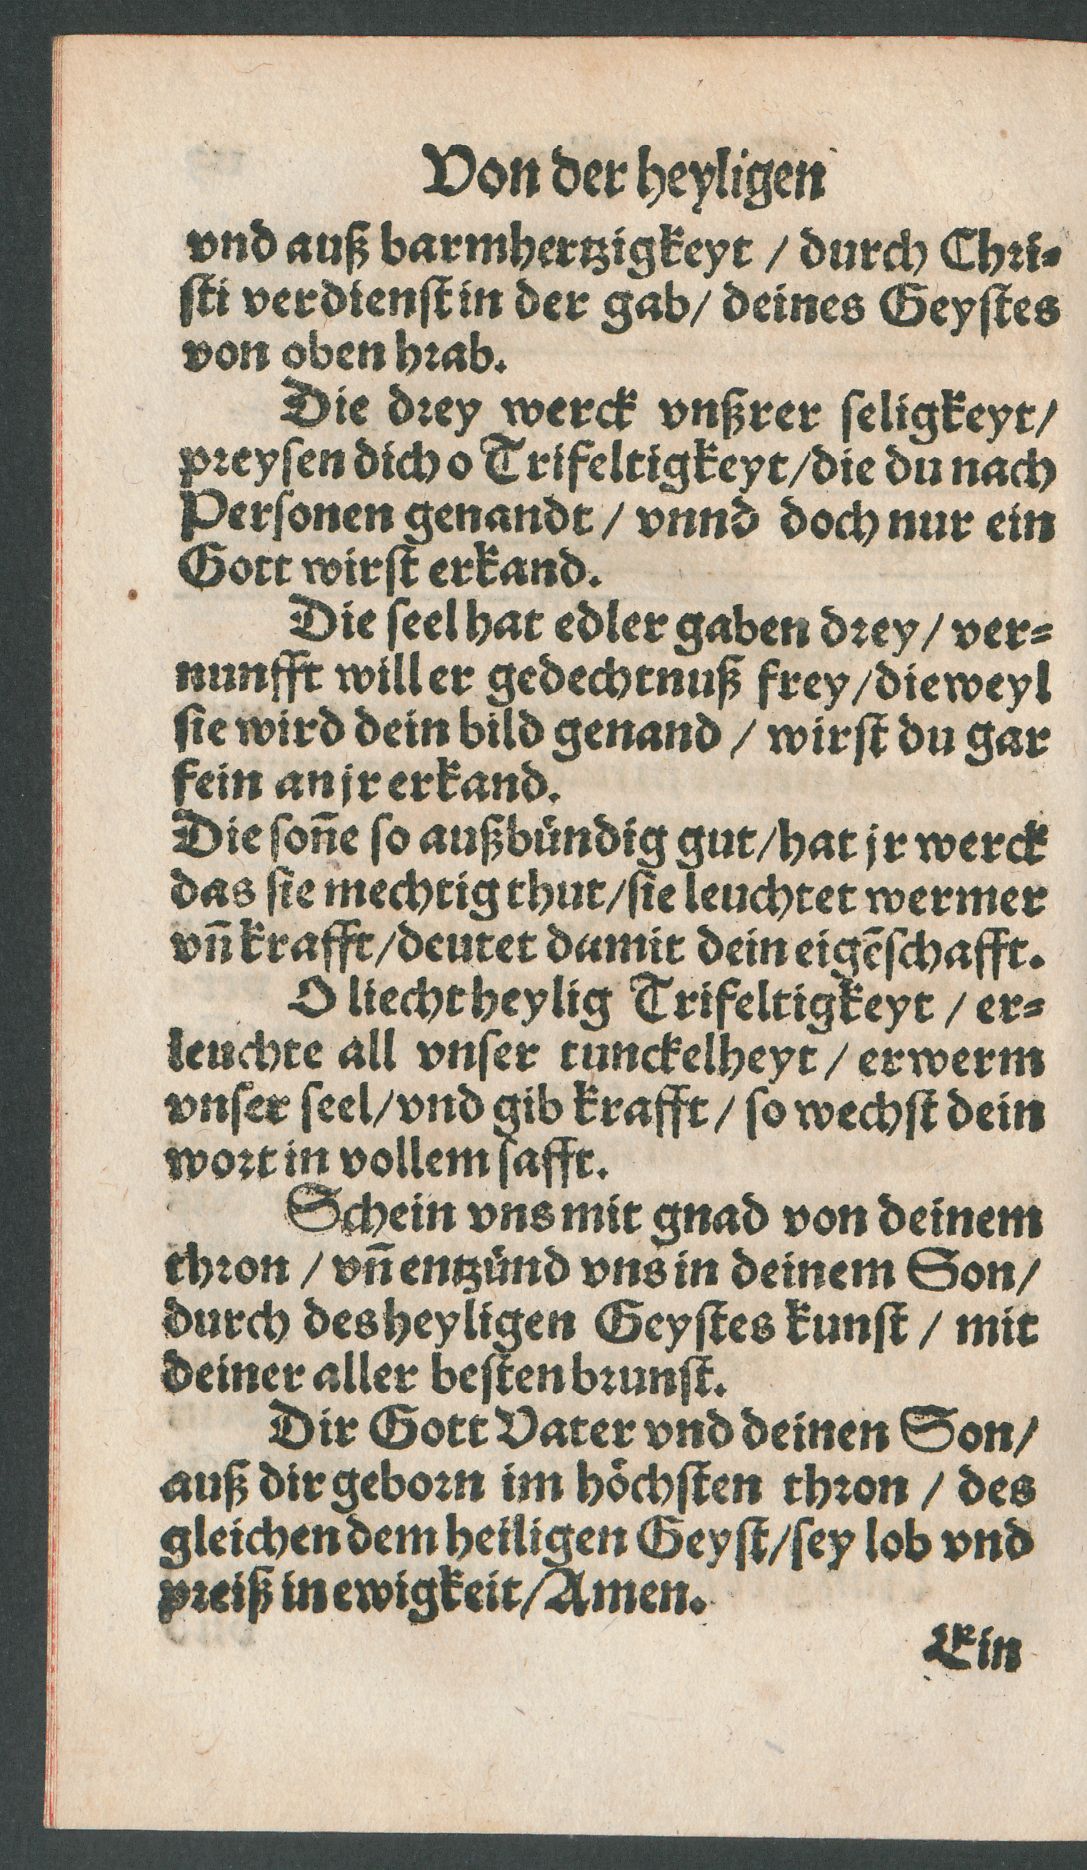 Von der heyligen
vnd auß barmhertzigkeyt / durch Chri-
sti verdienst in der gab / deines Geystes
von oben hrab.
Die drey werck vnßrer seligkeyt /
preysen dich o Trifeltigkeyt / die du nach
Personen genandt / vnnd doch nur ein
Gott wirst erkand.
Die seel hat edler gaben drey / ver-
nunfft will er gedechtnuß frey / dieweyl
sie wird dein bild genand / wirst du gar
fein an jr erkand.
Die soñe so außbündig gut / hat jr werck
das sie mechtig thut / sie leuchtet wermer
vñ krafft / deutet damit dein eigẽschafft.
O liecht heylig Trifeltigkeyt / er-
leuchte all vnser tunckelheyt / erwerm
vnser seel / vnd gib krafft / so wechst dein
wort in vollem safft.
Schein vns mit gnad von deinem
thron / vñ entzünd vns in deinem Son /
durch des heyligen Geystes kunst / mit
deiner aller besten brunst.
Dir Gott Vater vnd deinen Son /
auß dir geborn im höchsten thron / des
gleichen dem heiligen Geyst / sey lob vnd
preiß in ewigkeit / Amen.
Ein